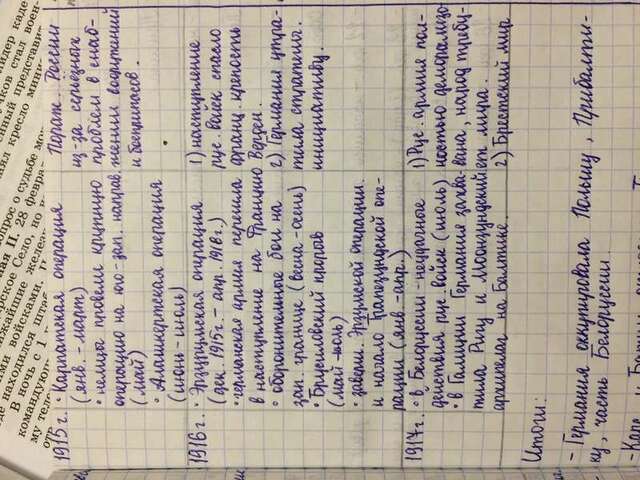 1915 г.
• Карпатская операция
(янв. - март)
• немцы провели крупную
операцию на юго-зап. направ.
(май)
• Алашкертская операция
(июнь - июль)
Пораж. России
из-за серьёзных
проблем в снаб-
жении вооружений
и боеприпасов.
1916 г.
• Эрзурумская операция
(дек. 1915 г. - апр. 1918 г.)
• германская армия перешла
в наступление на Францию
• оборонительные бои на
зап. границе (весна - осень)
• Брусиловский прорыв
(май - июль)
• заверш. Эрзумской операции.
и начало Трапезундской опе-
рации (янв. - апр.)
1) наступление
рус. войск спасло
франц. крепость
Верден.
2) Германия утра-
тила стратегич.
инициативу.
1917 г.
• в Белоруссии - неудачные
действия рус. войск (июль)
• в Галиции Германия захва-
тила Ригу и Моонзундский
архипелаг на Балтике.
1) Рус. армия пол-
ностью деморализо-
вана, народ требу-
ет мира.
2) Брестский мир
Итоги:
- Германия оккупировала Польшу, Прибалти-
ку, часть Белоруссии.